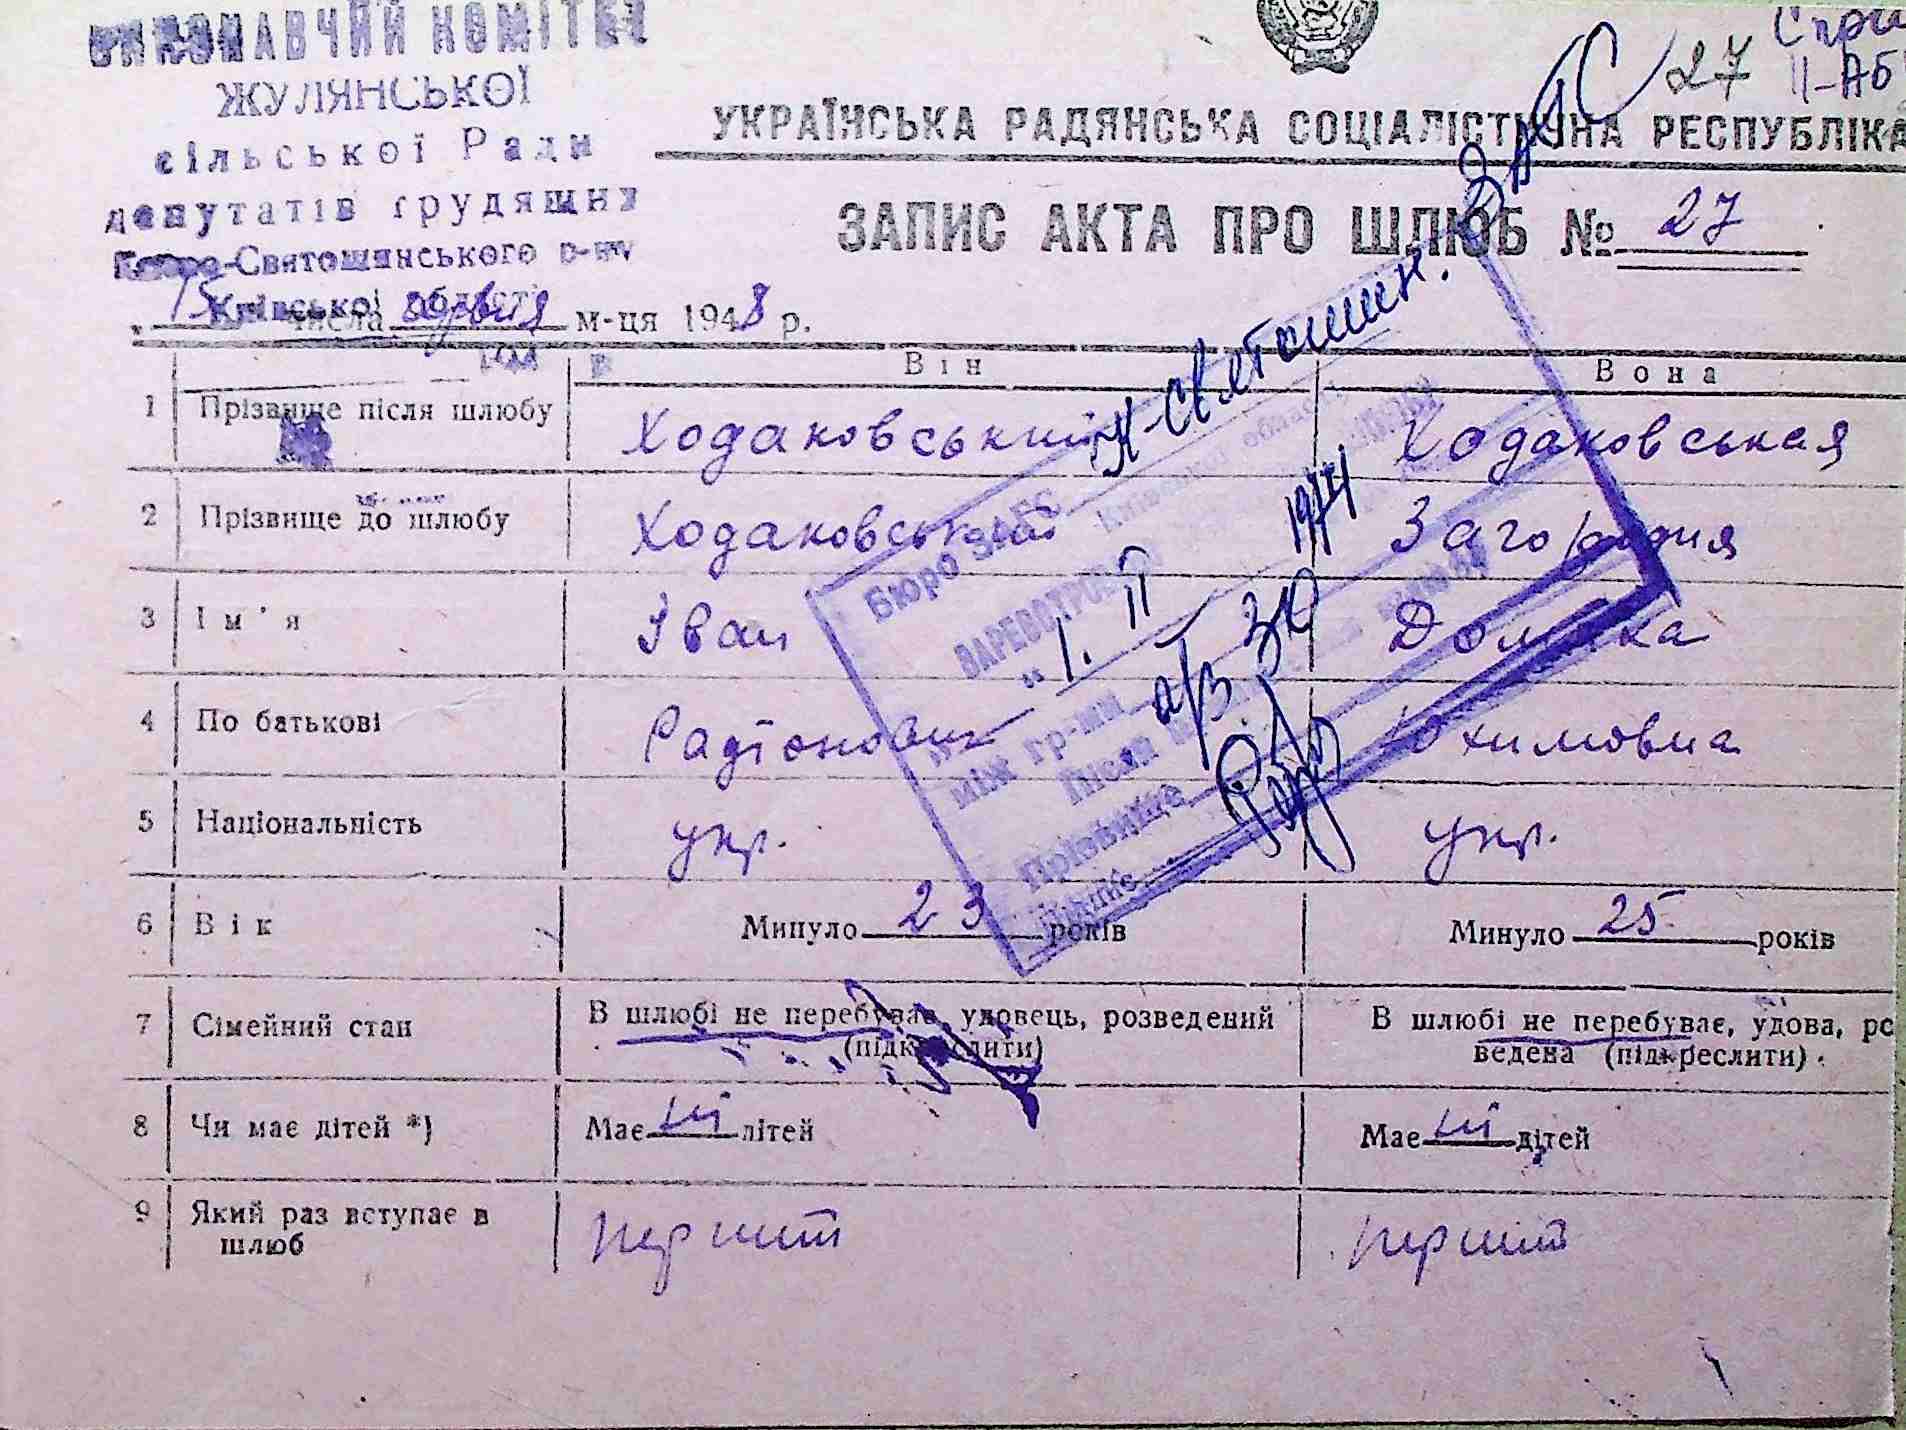 ВИКОНАВЧИЙ КОМІТЕТ
ЖУЛЯНСЬКОЇ
сільської Ради
депутатів трудящих
Києво-Святошинського р-ну
Київської області
27
УКРАЇНСЬКА РАДЯНСЬКА СОЦІАЛІСТИЧНА РЕСПУБЛІКА
ЗАПИС АКТА ПРО ШЛЮБ № 27
15 числа м-ця 1948 р.
Він Вона
1 Прізвище після шлюбу Ходаковський Ходаковськая
2 Прізвище до шлюбу Ходаковський Загородня
3 Ім'я Іван Домака
4 По батькові Радіонович Юхимовна
5 Національність укр. укр.
6 Вік Минуло 23 років Минуло 25 років
7 Сімейний стан В шлюбі не перебуває, удовець, розведений (підкреслити) В шлюбі не перебуває, удова, ро
ведена (підкреслити)
8 Чи має дітей *) Має ні дітей Має ні дітей
9 Який раз вступає в шлюб перший перший
К-Святошин. ЗАГС
Бюро ЗАГС
Київської області
„1. II 1974
а/з 30
між гр-ми
Після
Прізвище
Підпис